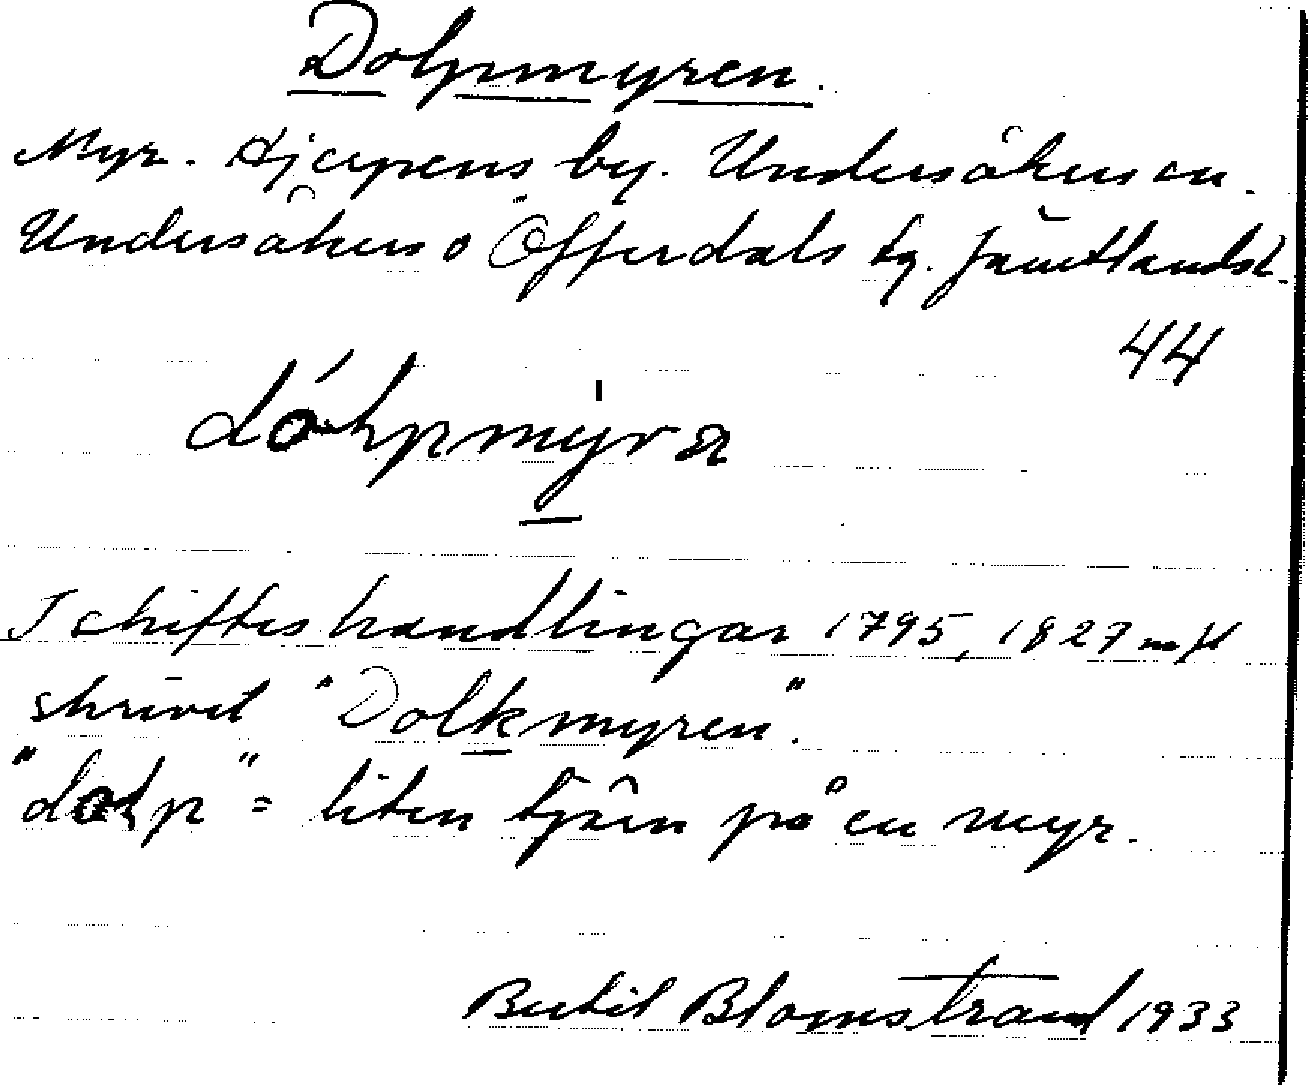 Dolpmyren.
Myr. Hjerpens by. Undersåkers sn.
Undersåkers o Offerdals tg. Jämtlands l.
44
dólpmy̱r
I skifteshandlingar 1795, 1827 m fl
skrivet "Dolkmyren".
"dolp" = liten tjärn på en myr.
Bertil Blomstrand 1933